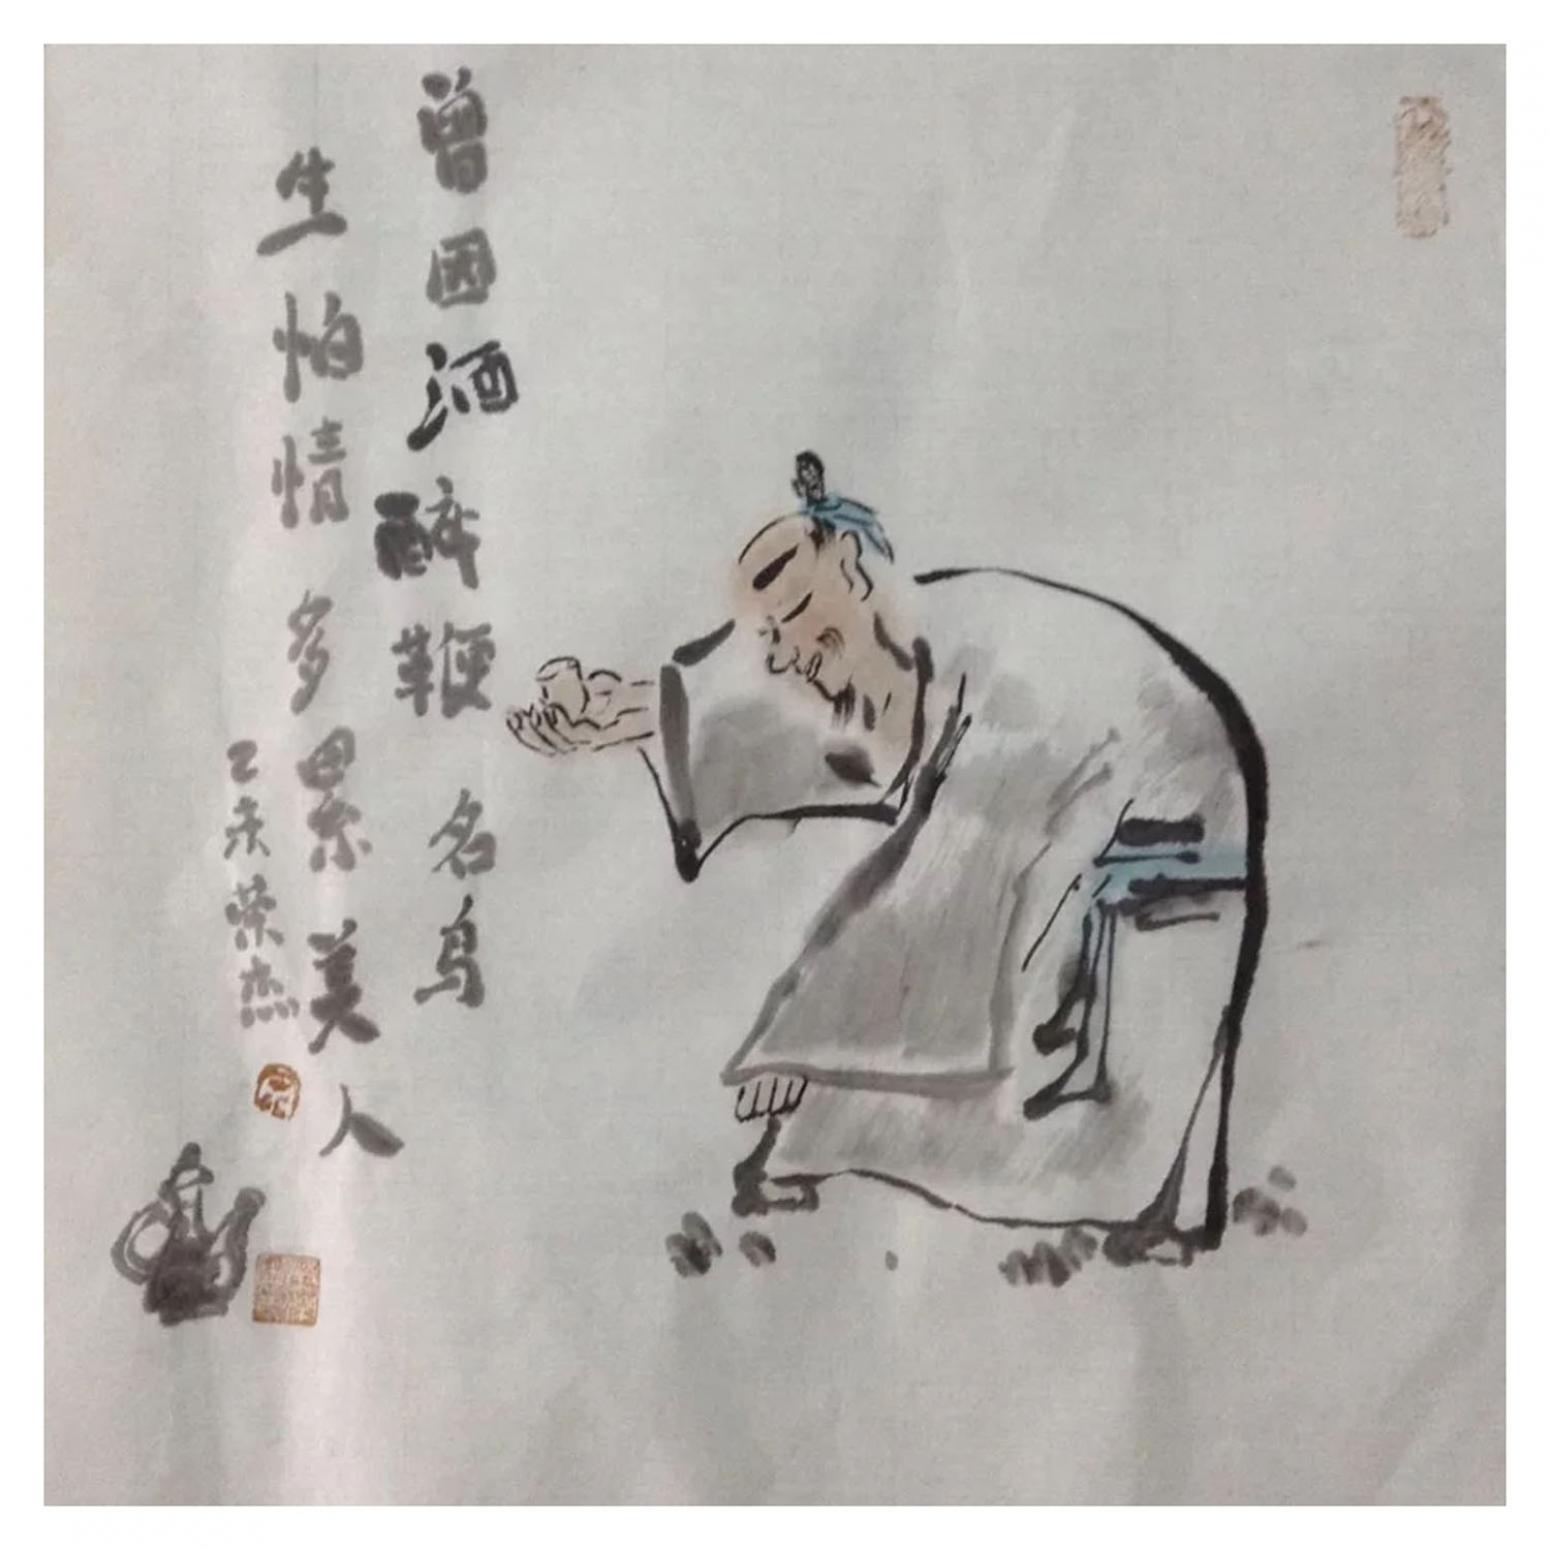 曾因酒醉鞭名马
生怕情多累美人
乙未荣杰